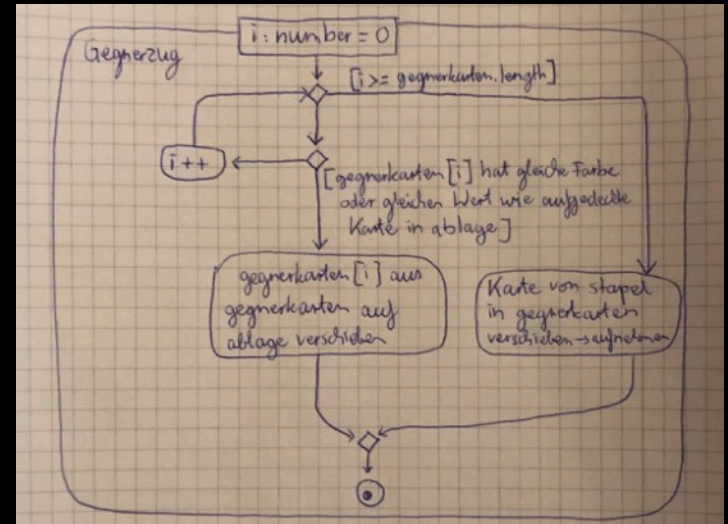 i : number = 0
Gegnerzug
[i >= gegnerkarten.length]
i++
[gegnerkarten [i] hat gleiche Farbe
oder gleichen Wert wie aufgedeckte
Karte in ablage]
gegnerkarten [i] aus
gegnerkarten auf
ablage verschieben
Karte von stapel
in gegnerkarten
verschieben → aufnehmen